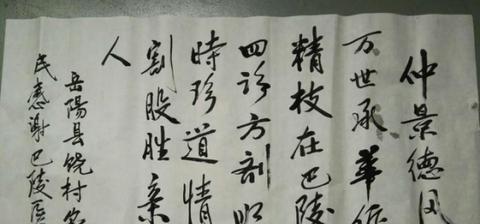 仲景德风
万世承華佗
精技在巴陵
四诊方剖明
時珍道情
割股胜亲
人
岳陽县饶村农
民感谢巴陵医